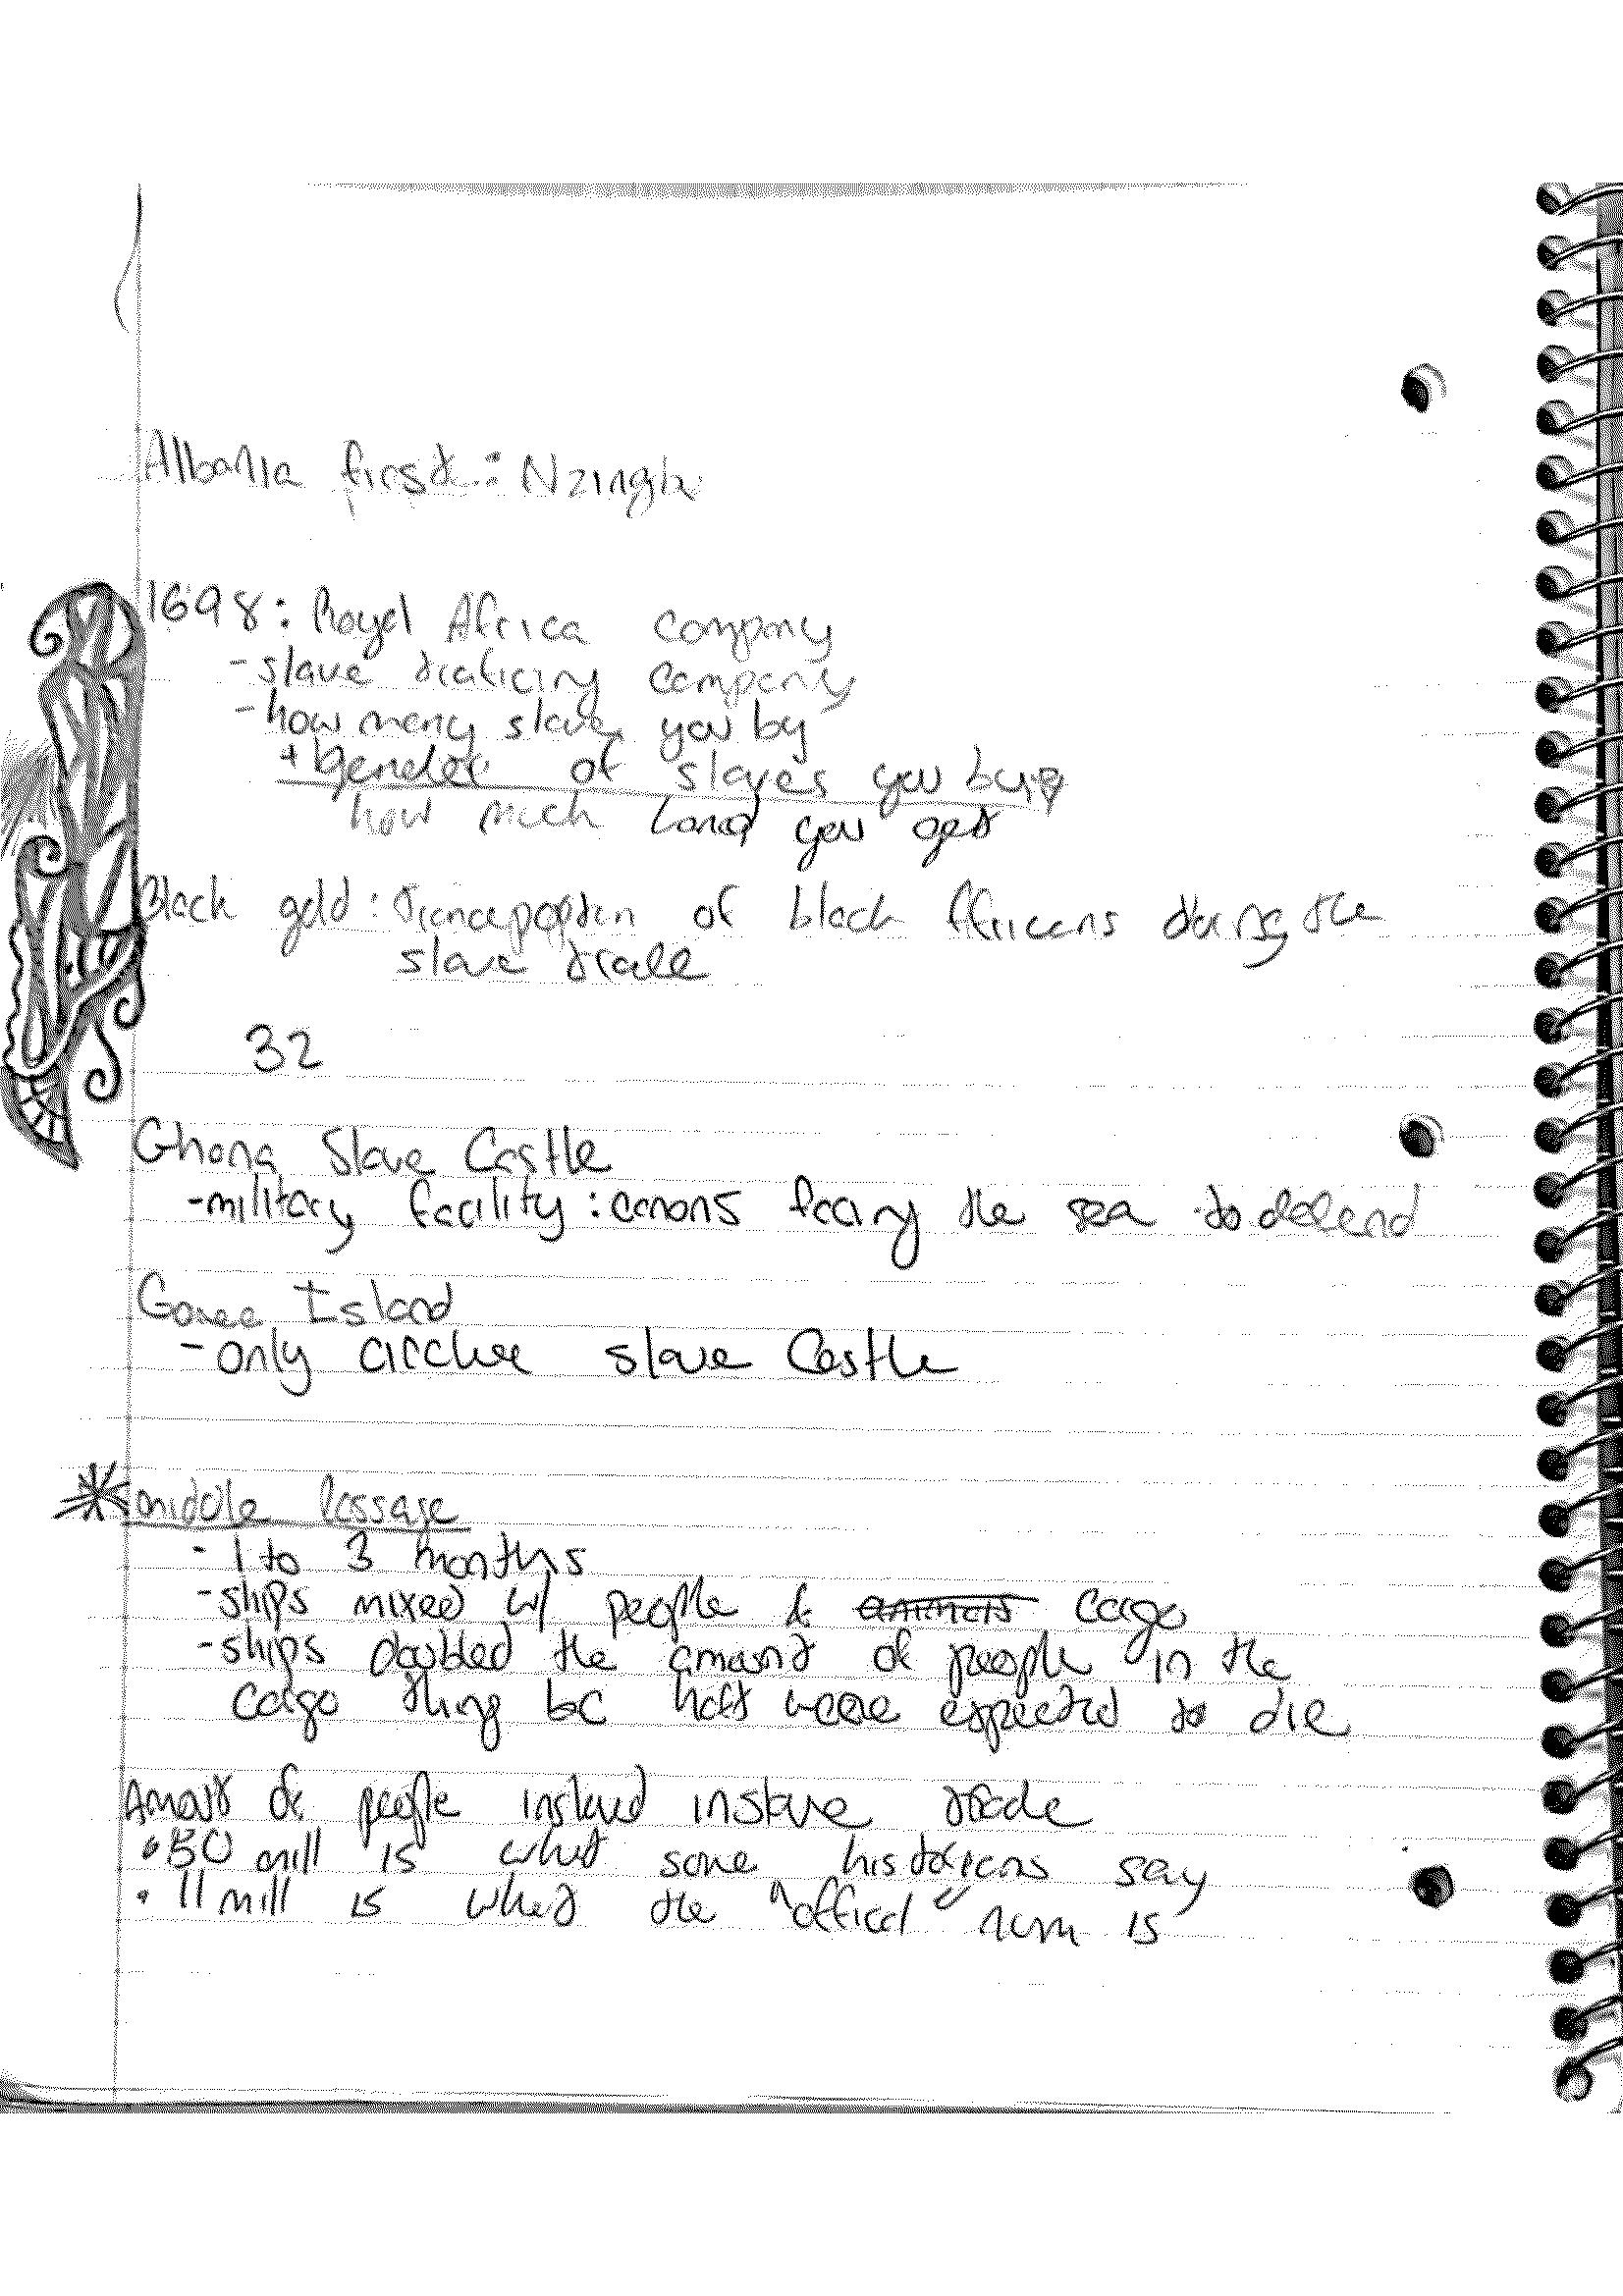 Albania first: Nzingha
1698: Royal Africa company
- slave traficing company
- how many slaves you by
+ gender of slaves you buy
how much land you get
Black gold: Transportion of black Africans during the
slave trade
32
Ghana Slave Castle
- military facility: canons facing the sea to defend
Goree Island
- only circluer slave Castle
middle Passage
- 1 to 3 months
- ships mixed w/ people & animals cargo
- ships doubled the amount of people in the
cargo thing bc half were expected to die
Amount of people inslaved in slave trade
• 50 mill is what some historians say
• 11 mill is what the "offical" num is